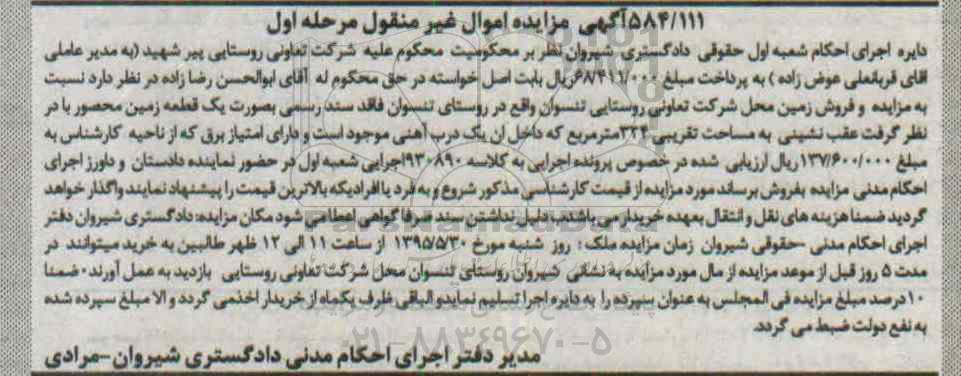 ۵۸۴/۱۱۱آگهی مزایده اموال غیر منقول مرحله اول
دایره اجرای احکام شعبه اول حقوقی دادگستری شیروان نظر بر محکومیت محکوم علیه شرکت تعاونی روستایی پیر شهید (به مدیر عاملی
آقای قربانعلی عوض زاده ) به پرداخت مبلغ ۶۸/۴۱۱/۰۰۰ریال بابت اصل خواسته در حق محکوم له آقای ابوالحسن رضا زاده در نظر دارد نسبت
به مزایده و فروش زمین محل شرکت تعاونی روستایی تنسوان واقع در روستای تنسوان فاقد سند رسمی بصورت یک قطعه زمین محصور با در
نظر گرفت عقب نشینی به مساحت تقریبی ۳۴۴مترمربع که داخل ان یک درب آهنی موجود است و دارای امتیاز برق که از ناحیه کارشناس به
مبلغ ۱۳۷/۶۰۰/۰۰۰ ریال ارزیابی شده در خصوص پرونده اجرایی به کلاسه ۹۳۰۸۹۰اجرایی شعبه اول در حضور نماینده دادستان و داورز اجرای
احکام مدنی مزایده بفروش برساند مورد مزایده از قیمت کارشناسی مذکور شروع و به فرد یا افرادیکه بالاترین قیمت را پیشنهاد نمایند واگذار خواهد
گردید ضمنا هزینه های نقل و انتقال بعهده خریدار می باشد.بدلیل نداشتن سند صرفا گواهی اعطا می شود مکان مزایده: دادگستری شیروان دفتر
اجرای احکام مدنی -حقوقی شیروان زمان مزایده ملک : روز شنبه مورخ ۱۳۹۵/۵/۳۰ از ساعت ۱۱ الی ۱۲ ظهر طالبین به خرید میتوانند در
مدت ۵ روز قبل از موعد مزایده از مال مورد مزایده به نشانی شیروان روستای تنسوان محل شرکت تعاونی روستایی بازدید به عمل آورند۰ ضمنا
۱۰درصد مبلغ مزایده فی المجلس به عنوان سپرده را به دایره اجرا تسلیم نمایدو الباقی ظرف یکماه از خریدار اخذمی گردد و الا مبلغ سپرده شده
به نفع دولت ضبط می گردد.
مدیر دفتر اجرای احکام مدنی دادگستری شیروان-مرادی
ParsNamadData
۰۲۱-۸۸۳۴۹۶۷۰-۵